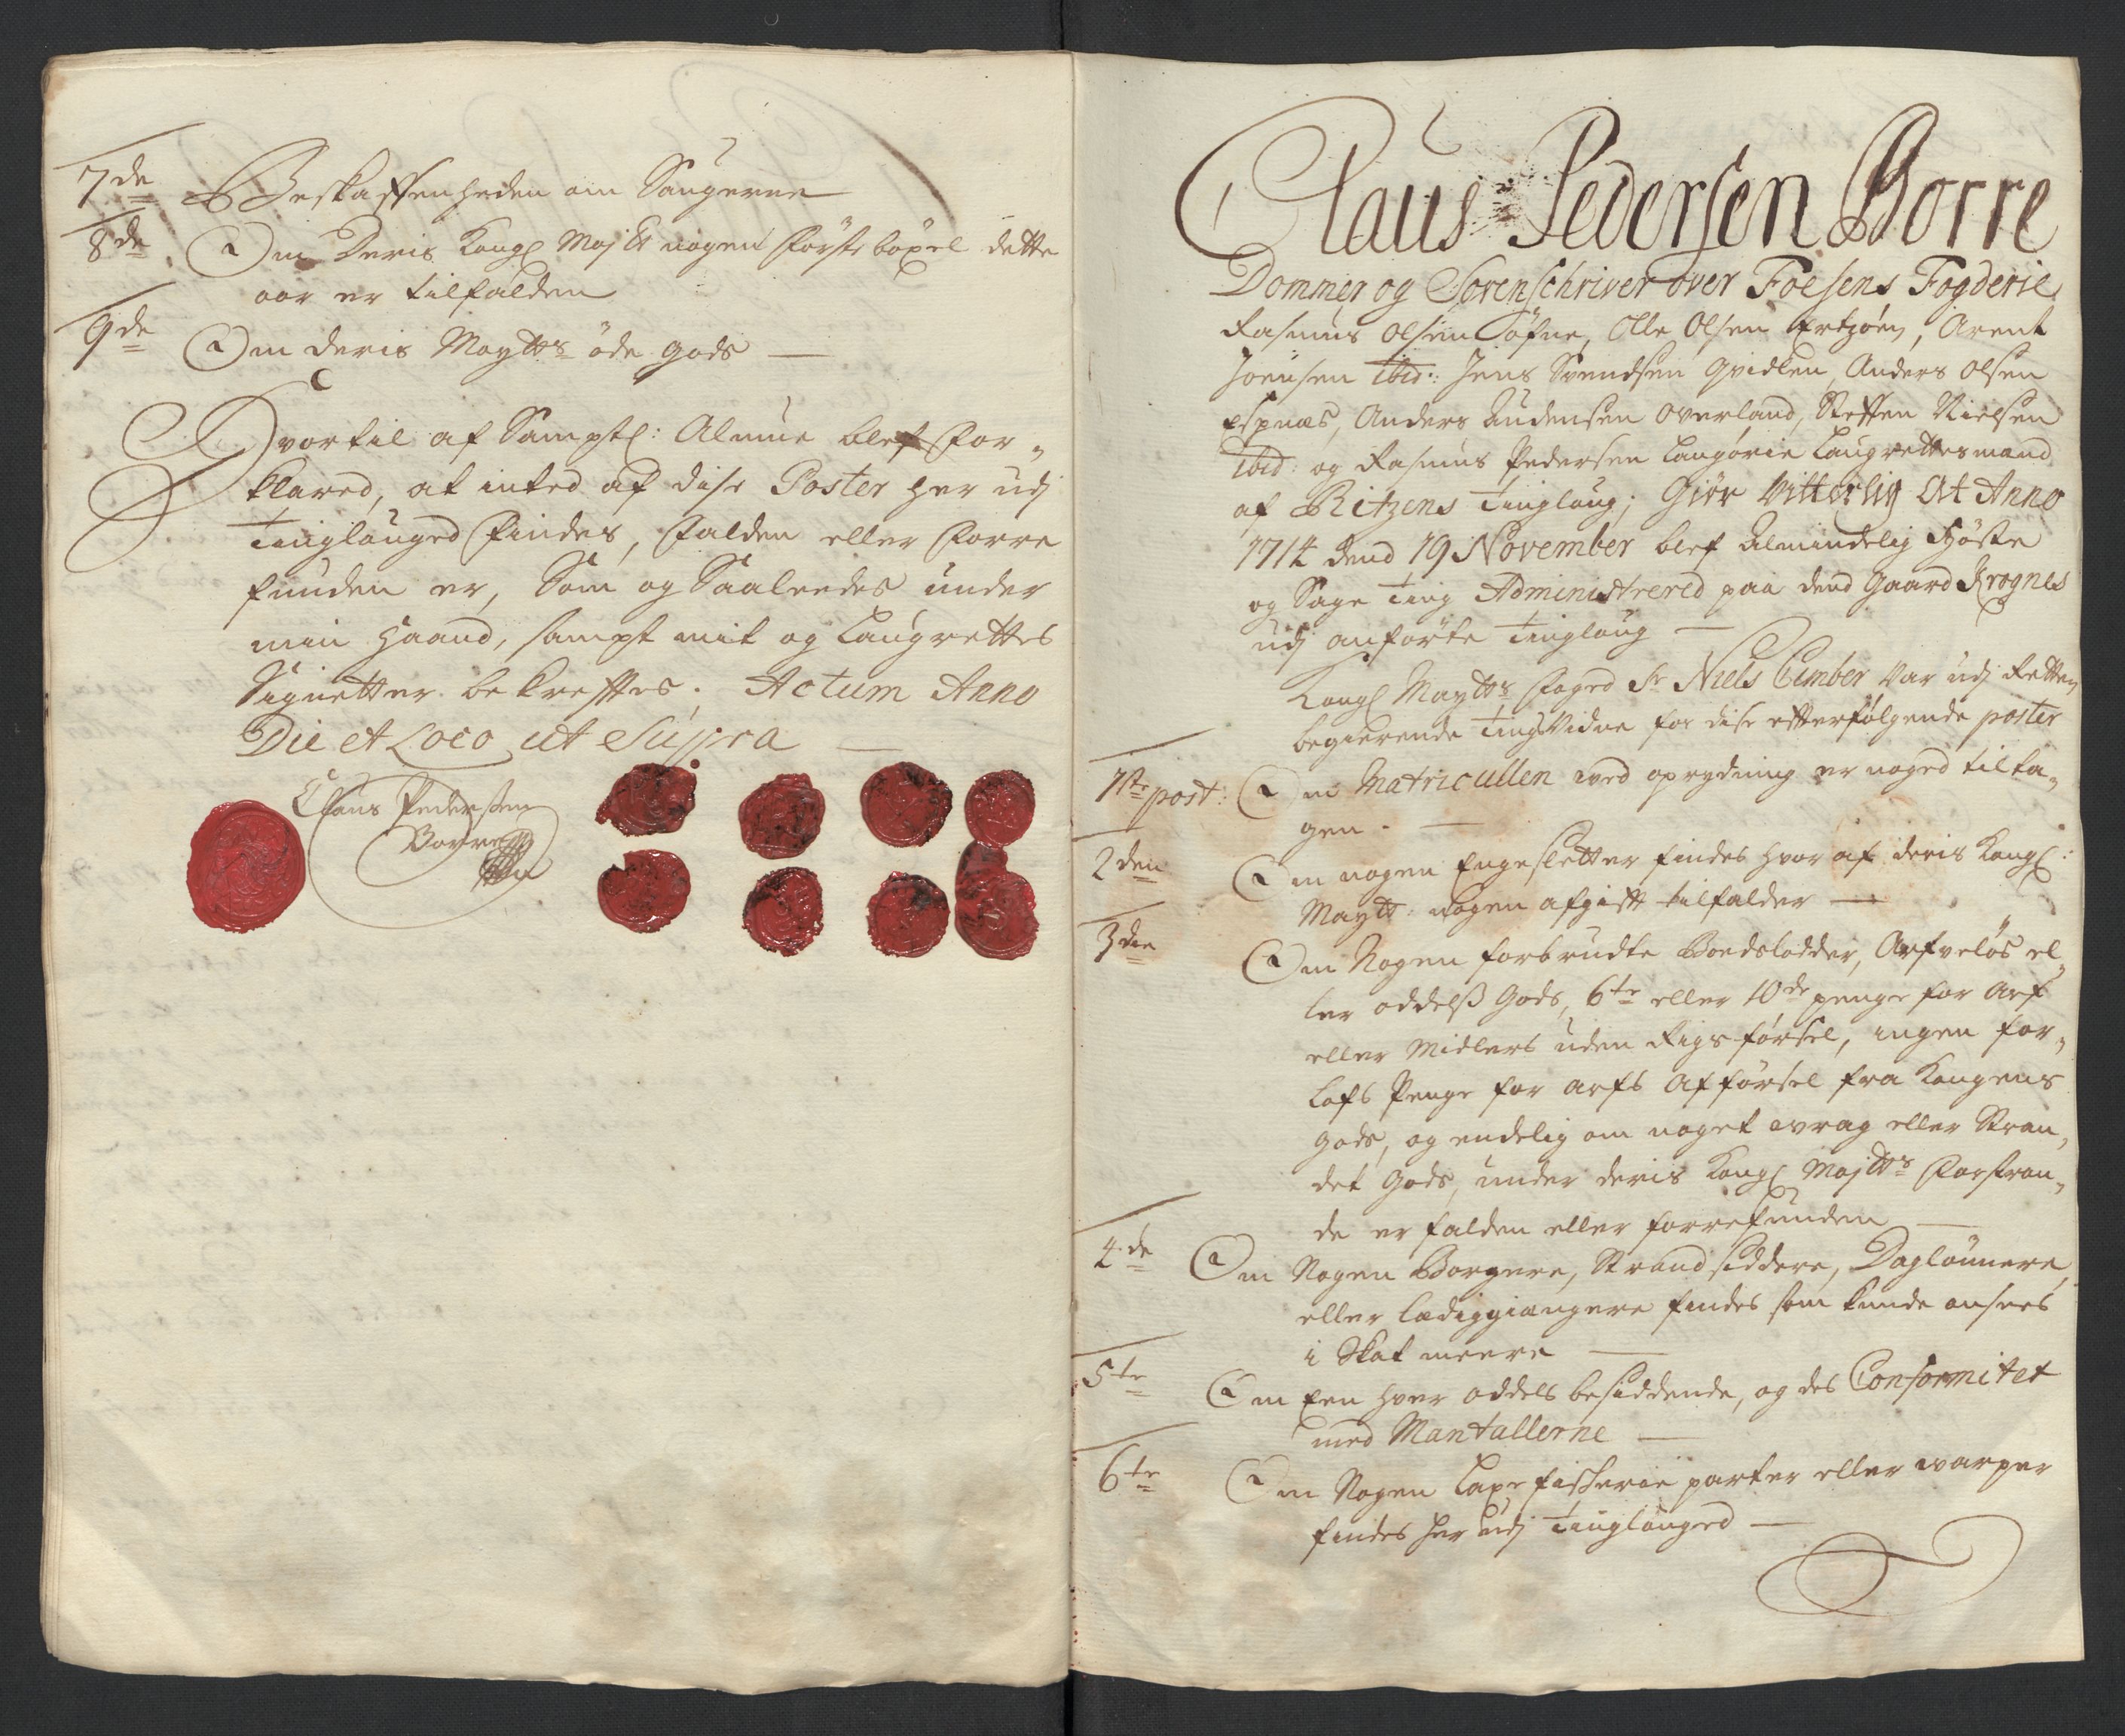 7de Beskaffenheden om Saugerne
8de Om Deris Kongl Maj tt nogen Förste böxel dette
aar er tilfalden
9de Om deris Maytts öde gods
Hvortil af Samptl: Almue blef For„
klared, at inted af disse Poster her udj
Tinglauged findes, falden eller forre
funden er, Som og Saaleedes under
min Haand, sampt mit og Laugrettes
Signetter bekreftes; Actum Anno
Die et Loco ut Supra
Claus Pedersen
Borre
Claus Pedersen Borre
Dommer og Sorenschriver over Foesens Fogderie
Rasmus Olsen Söfne, Olle Olsen Ertzöen, Arent
Joensen ibid: Jens Svendsen Qvidlen, Anders Olsen
Espnæs, Anders Audensen Overland, Steffen Nielsen
ibid: og Rasmus Pedersen Langörie Laugrettesmænd
af Bitzens Tinglaug; Giör Vitterlig At Anno
1714 dend 19 November blef Almindelig Höste
og Sage Ting Administrered paa dend gaard Krognes
udj anförte Tinglaug
Kongl Maytts Foged Sr Niels Cimber var udj Retten
begierende Tings Vidne for disse efterfölgende poster
1ste post: Om Matricullen ved oprydning er noged tilta„
gen.
2den Om nogen Engesletter findes hvor af deris Kongl:
Maytt: nogen afgift tilfalder
3die Om Nogen forbrudte Boedslodder, Arfvelös el„
ler oddelss Gods, 6te eller 10de penge for Arf
eller Midlers uden Rigs förhsel, ingen for„
lofs Penge for arfs Afförsel fra Kongens
gods, og endelig om noget wrag eller Stran„
det Gods, under deris Kongl Majtts Forstran„
de er falden eller forrefunden
4de Om Nogen Borgere, Strandsiddere, Daglönnere,
eller Lædiggiængere findes som kunde ansees
i Skat meere
5te Om Een hver oddels besiddende, og des Conformitet
med Mantallerne
6te Om Nogen Laxe fischerie parter eller warper
findes her udj Tinglauged